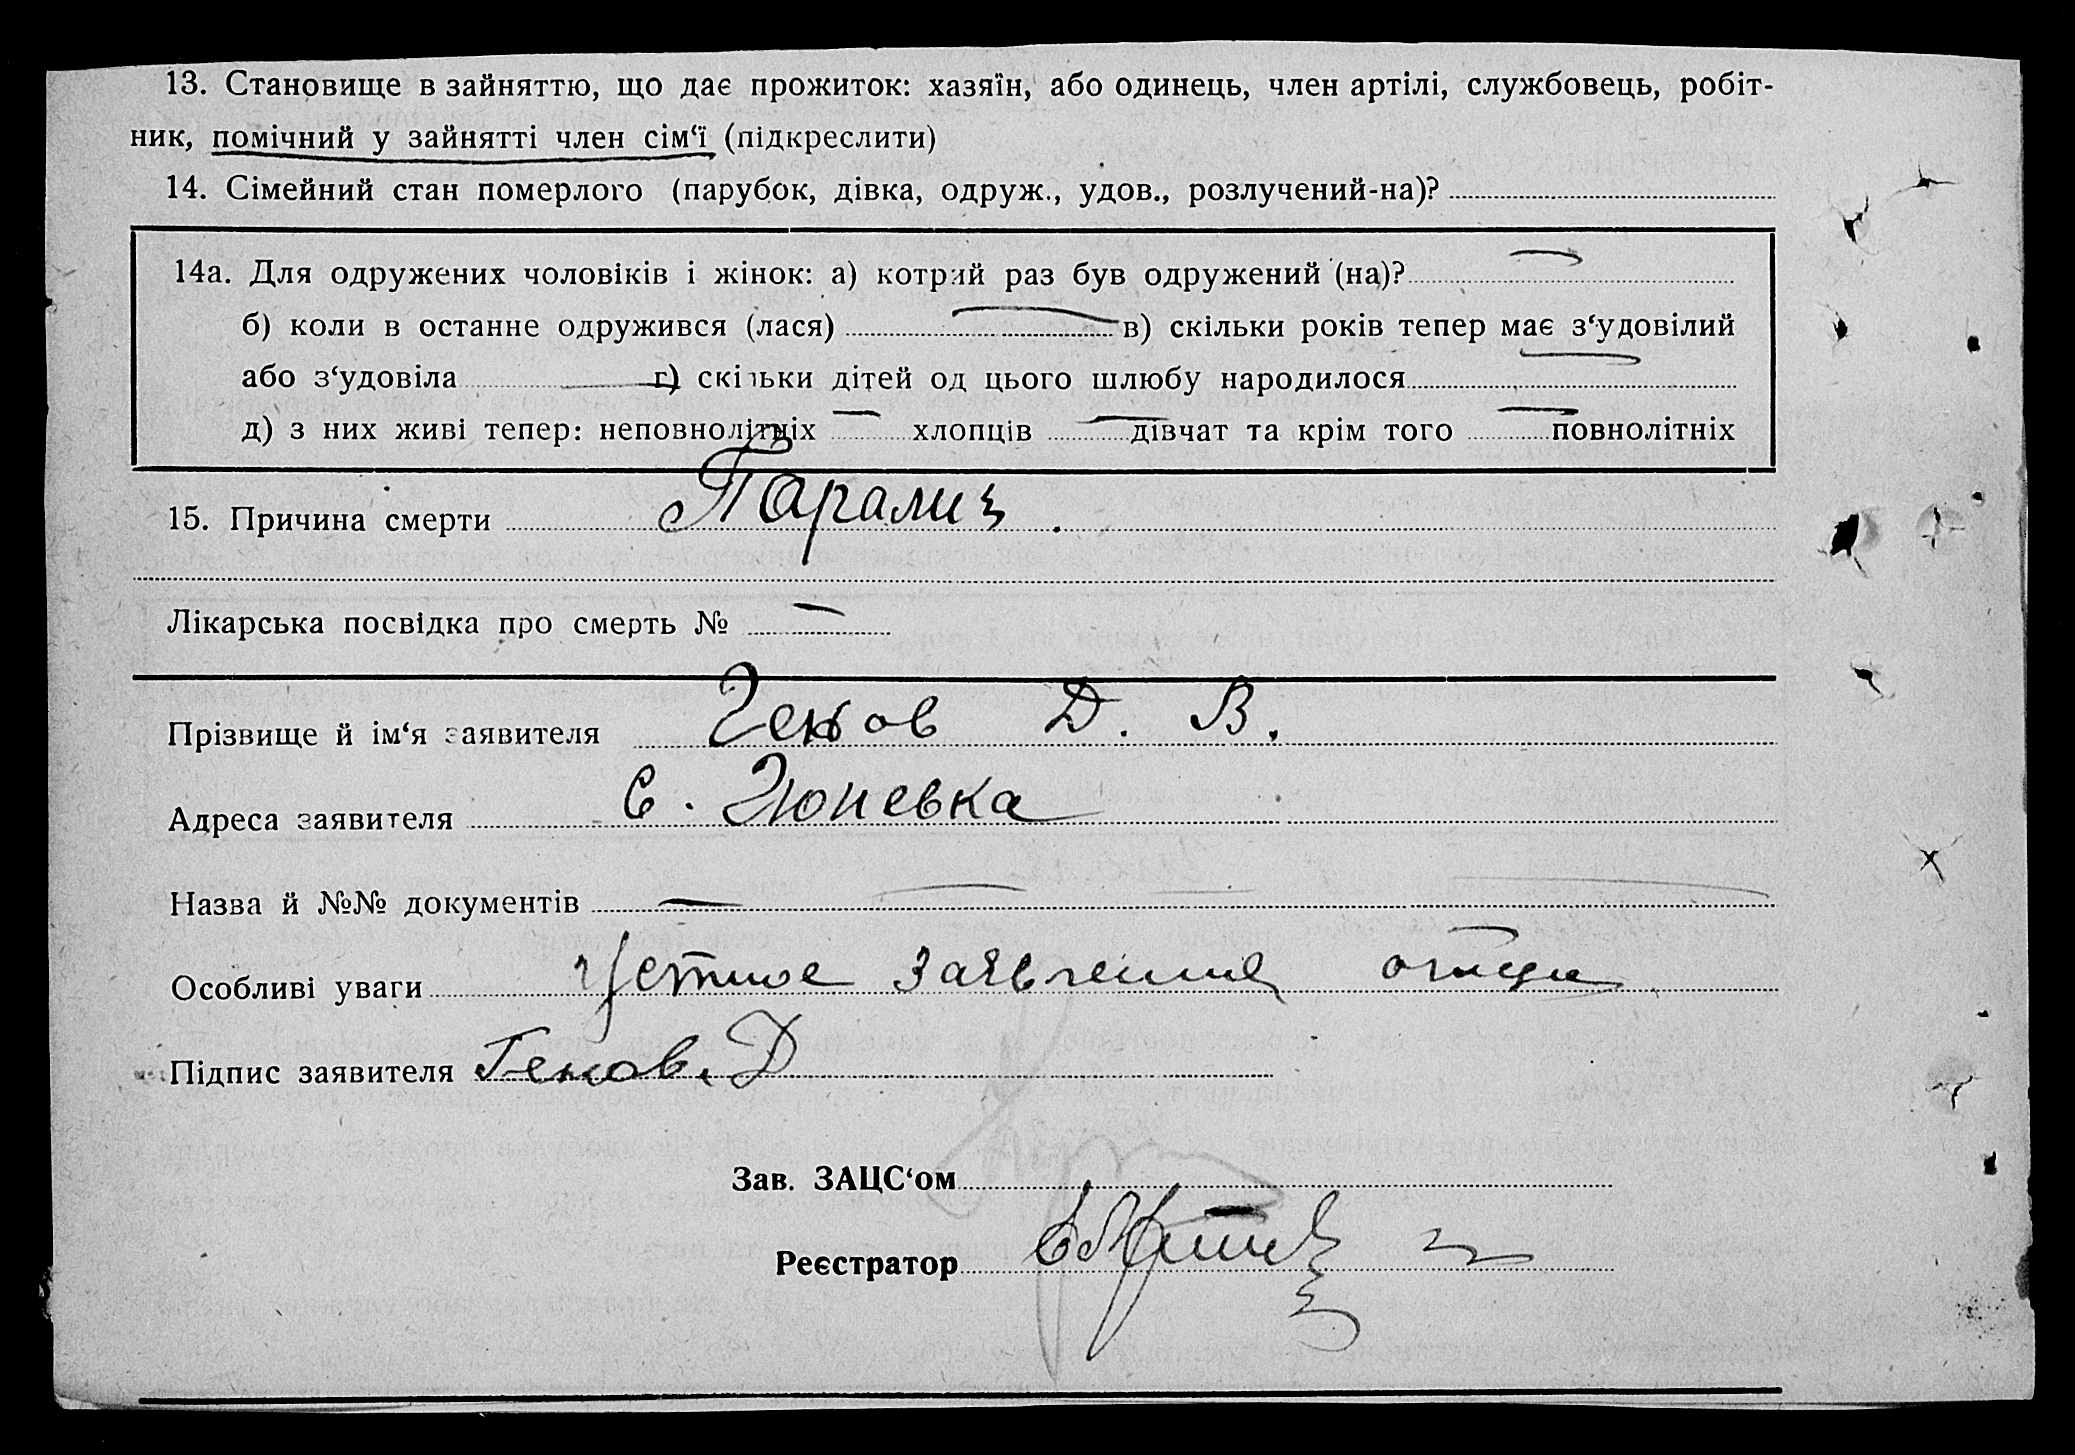 13. Становище в зайняттю, що дає прожиток: хазяїн, або одинець, член артілі, службовець, робіт-
ник, помічний у зайнятті член сім‘ї (підкреслити)
14. Сімейний стан померлого (парубок, дівка, одруж., удов., розлучений-на)?
14а. Для одружених чоловіків і жінок: а) котрий раз був одружений (на)?
б) коли в останне одружився (лася) в) скільки років тепер має з‘удовілий
або з‘удовіла г) скільки дітей од цього шлюбу народилося
д) з них живі тепер: неповнолітніх хлопців дівчат та крім того повнолітніх
15. Причина смерти Паралиц.
Лікарська посвідка про смерть №
Прізвище й ім‘я заявителя Генов Д. В.
Адреса заявителя С. Зюневка
Назва й №№ документів
Особливі уваги Устное заявление отца
Підпис заявителя Генов. Д
Зав. ЗАЦС‘ом
Реєстратор